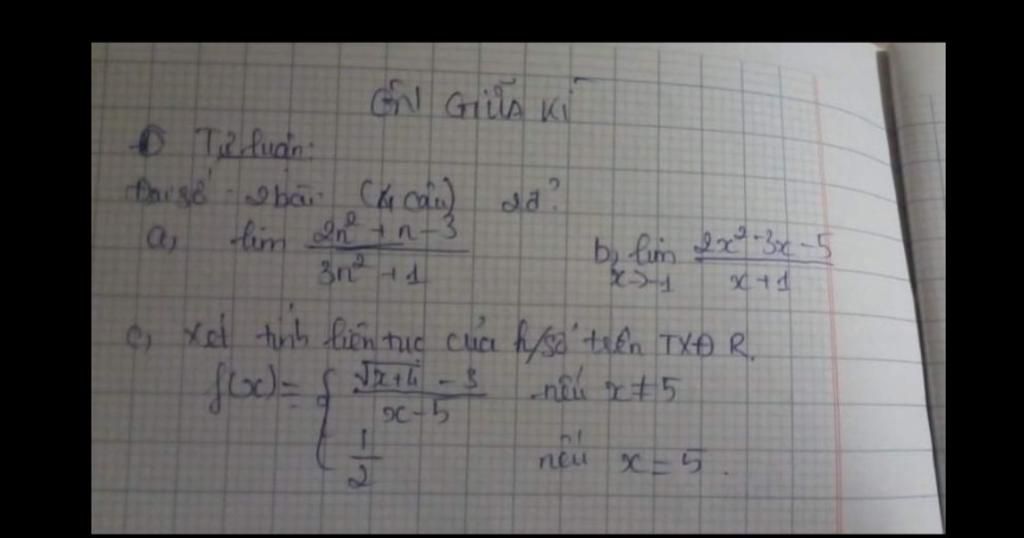 ÔN GIỮA KÌ
① Tự luận:
Đại số - 2 bài - (4 câu) 2đ?
a, lim (2n² + n - 3)/(3n² + 1) b, lim x→-1 (2x² - 3x - 5)/(x + 1)
c, Xét tính liên tục của h/số trên TXĐ R.
f(x) = { (√(x+4) - 3)/(x - 5) nếu x ≠ 5
1/2 nếu x = 5.